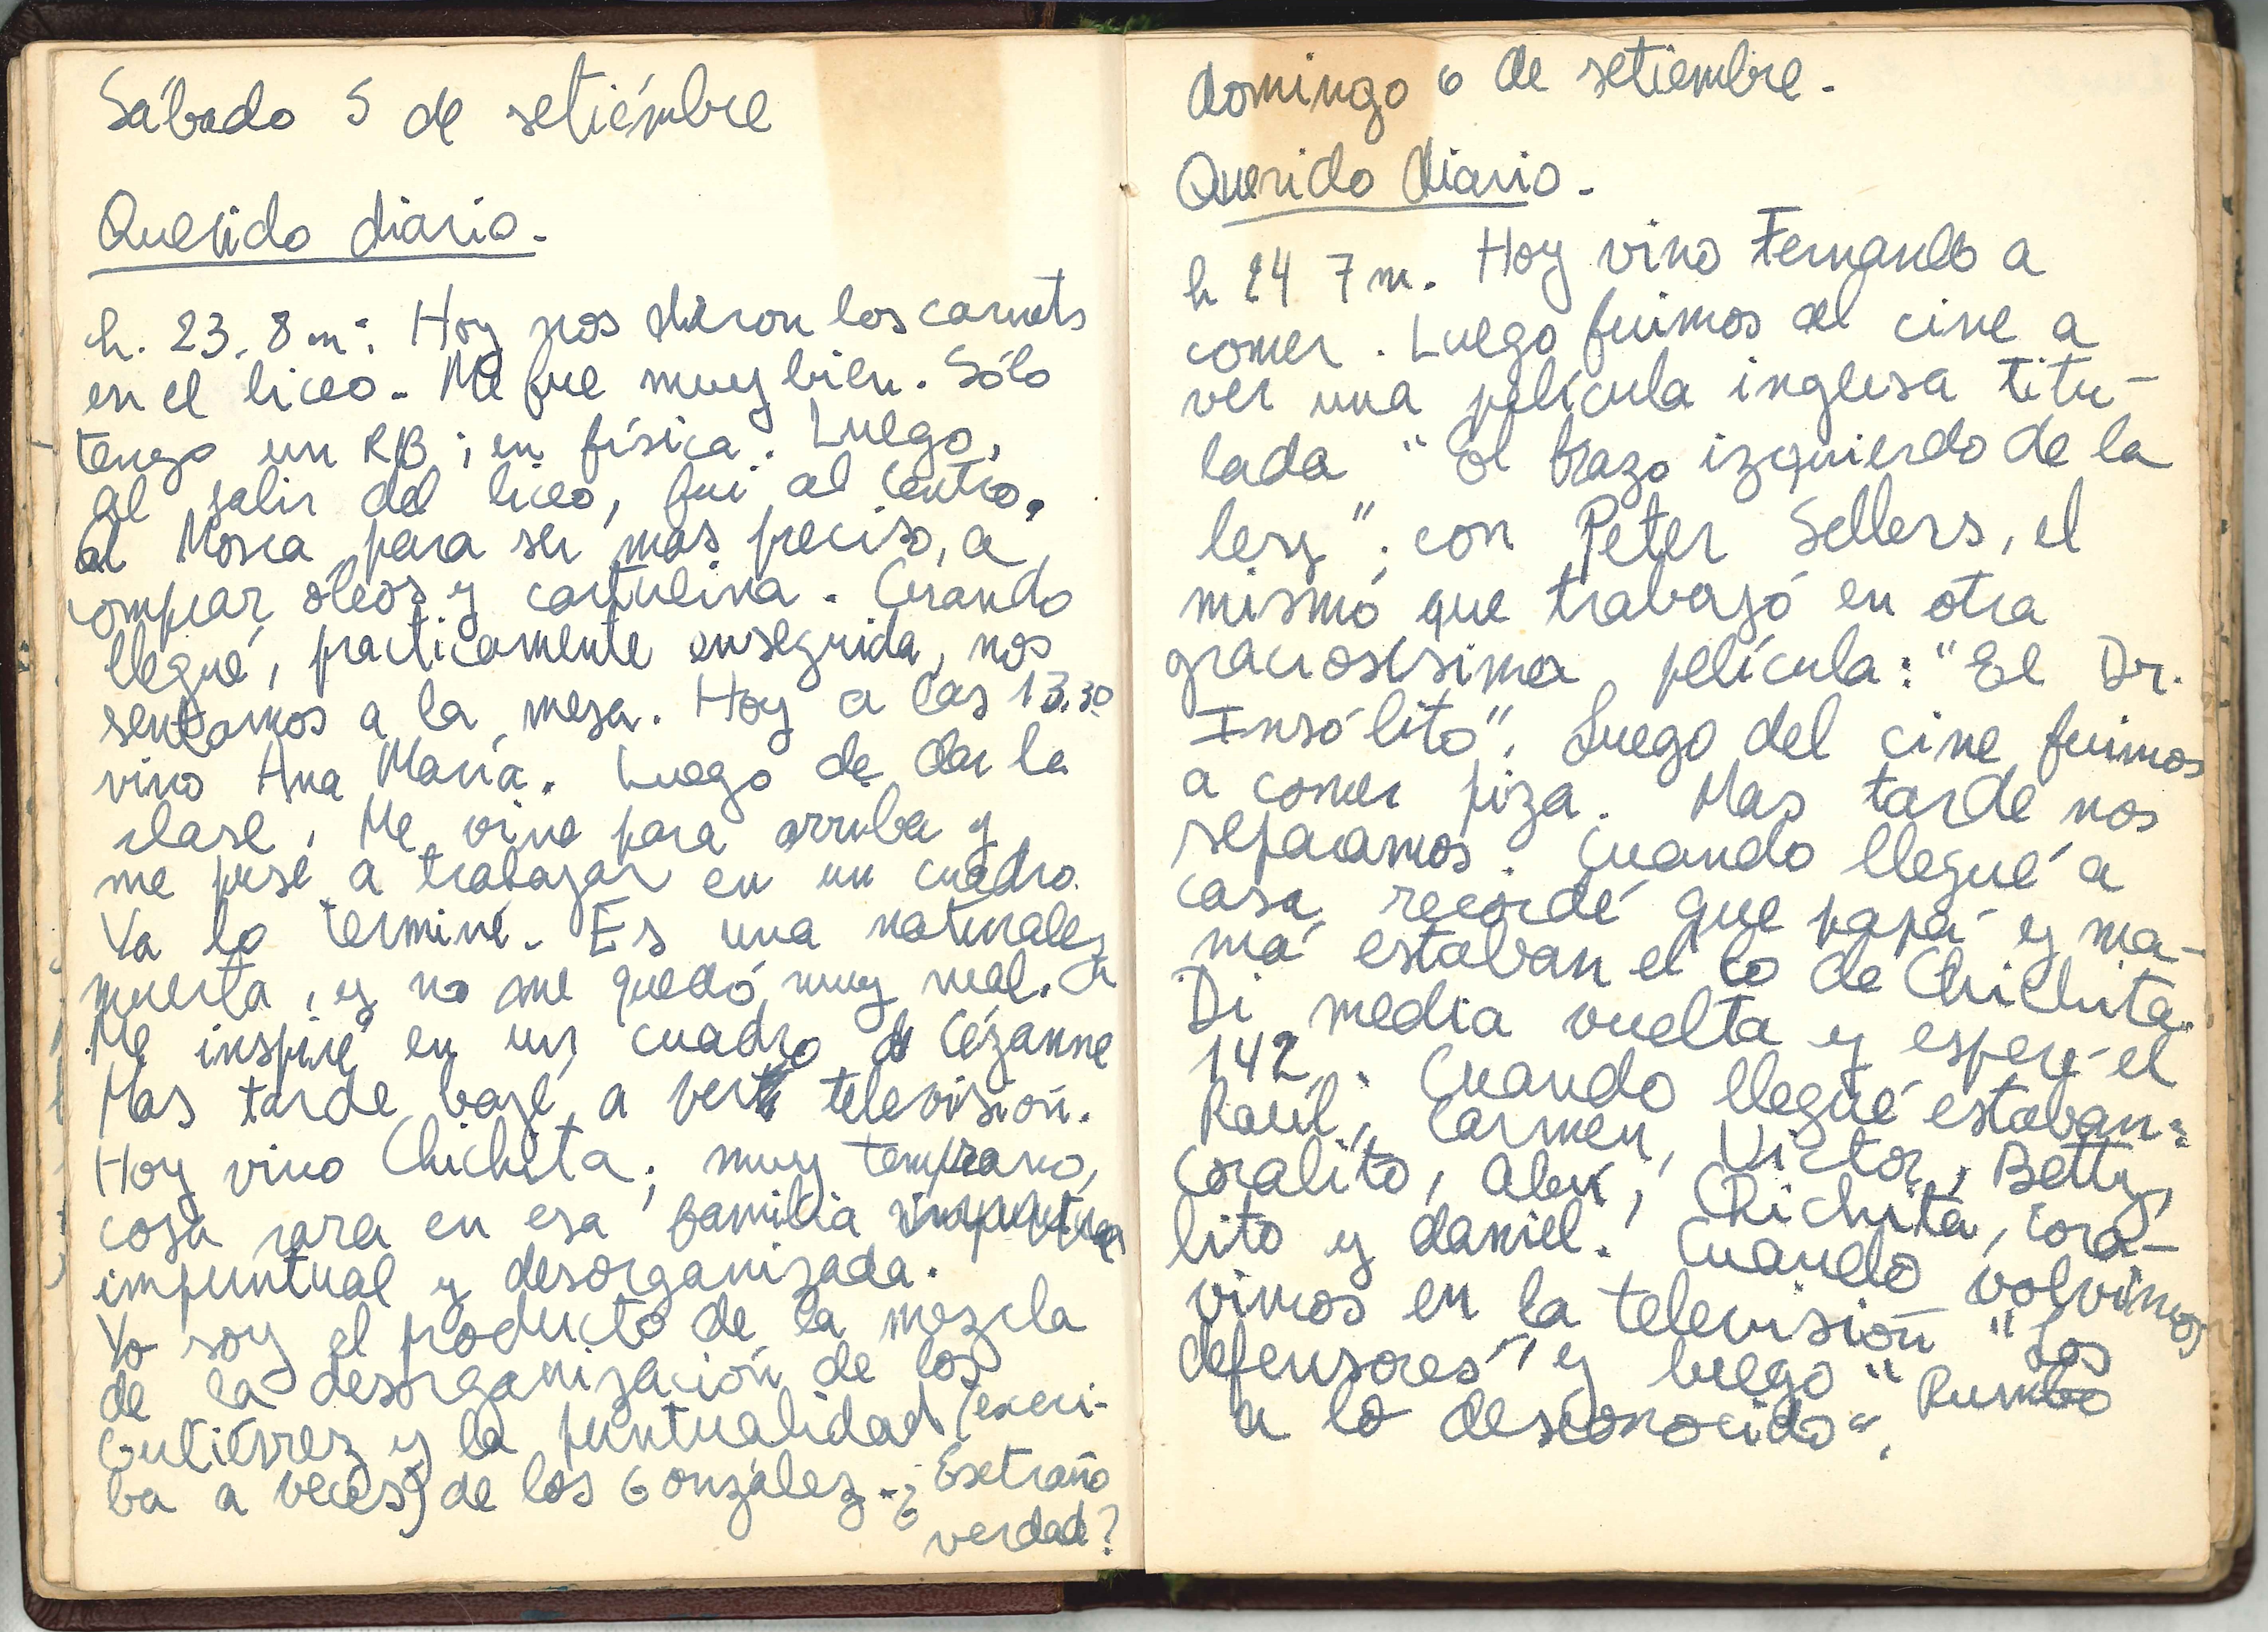 Sábado 5 de setiémbre
Querido diario.-
h. 23. 8 m: Hoy nos dieron los carnets
en el liceo.- Me fue muy bien. Sólo
tengo un RB; en física. Luego,
al salir del liceo, fui al Centro,
al Mosca para ser mas preciso, a
comprar óleos y cartulina. Cuando
llegué, practicamente enseguida, nos
sentamos a la mesa. Hoy a las 13.30
vino Ana María. Luego de dar la
clase, Me vine para arriba y
me puse a trabajar en un cuadro.
Ya lo terminé. Es una naturaleza
muerta, y no me quedó muy mal.
Me inspiré en un cuadro de Cézanne
Mas tarde bajé a ver televisión.
Hoy vino Chichita; muy temprano,
cosa rara en esa familia
impuntual y desorganizada.
Yo soy el producto de la mezcla
de la desorganización de los
Gutiérrez y la puntualidad (exceri-
ba a veces) de los González.- ¿Extraño
verdad?
domingo 6 de setiembre.
Querido diario.-
h 24 7 m. Hoy vino Fernando a
comer. Luego fuimos al cine a
ver una película inglesa titu-
lada "El brazo izquierdo de la
ley"; con Peter Sellers, el
mismo que trabajó en otra
graciosísima película: "El Dr.
Insólito". Luego del cine fuimos
a comer piza. Mas tarde nos
separamos. Cuando llegué a
casa recordé que papá y ma-
má estaban el lo de Chichita.
Di media vuelta y esperé el
142. Cuando llegué estaban:
Raúl, Carmen, Victor, Betty,
Coralito, Chichita, Cora-
lito y daniel. Cuando volvimos
vimos en la televisión "Los
defensores" y luego "Rumbo
a lo desconocido".